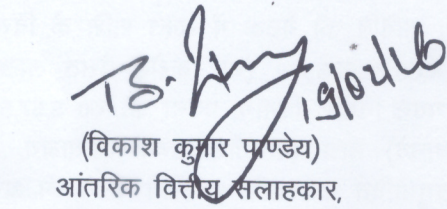 19/02/26
(विकाश कुमार पाण्डेय)
आंतरिक वित्तीय सलाहकार,